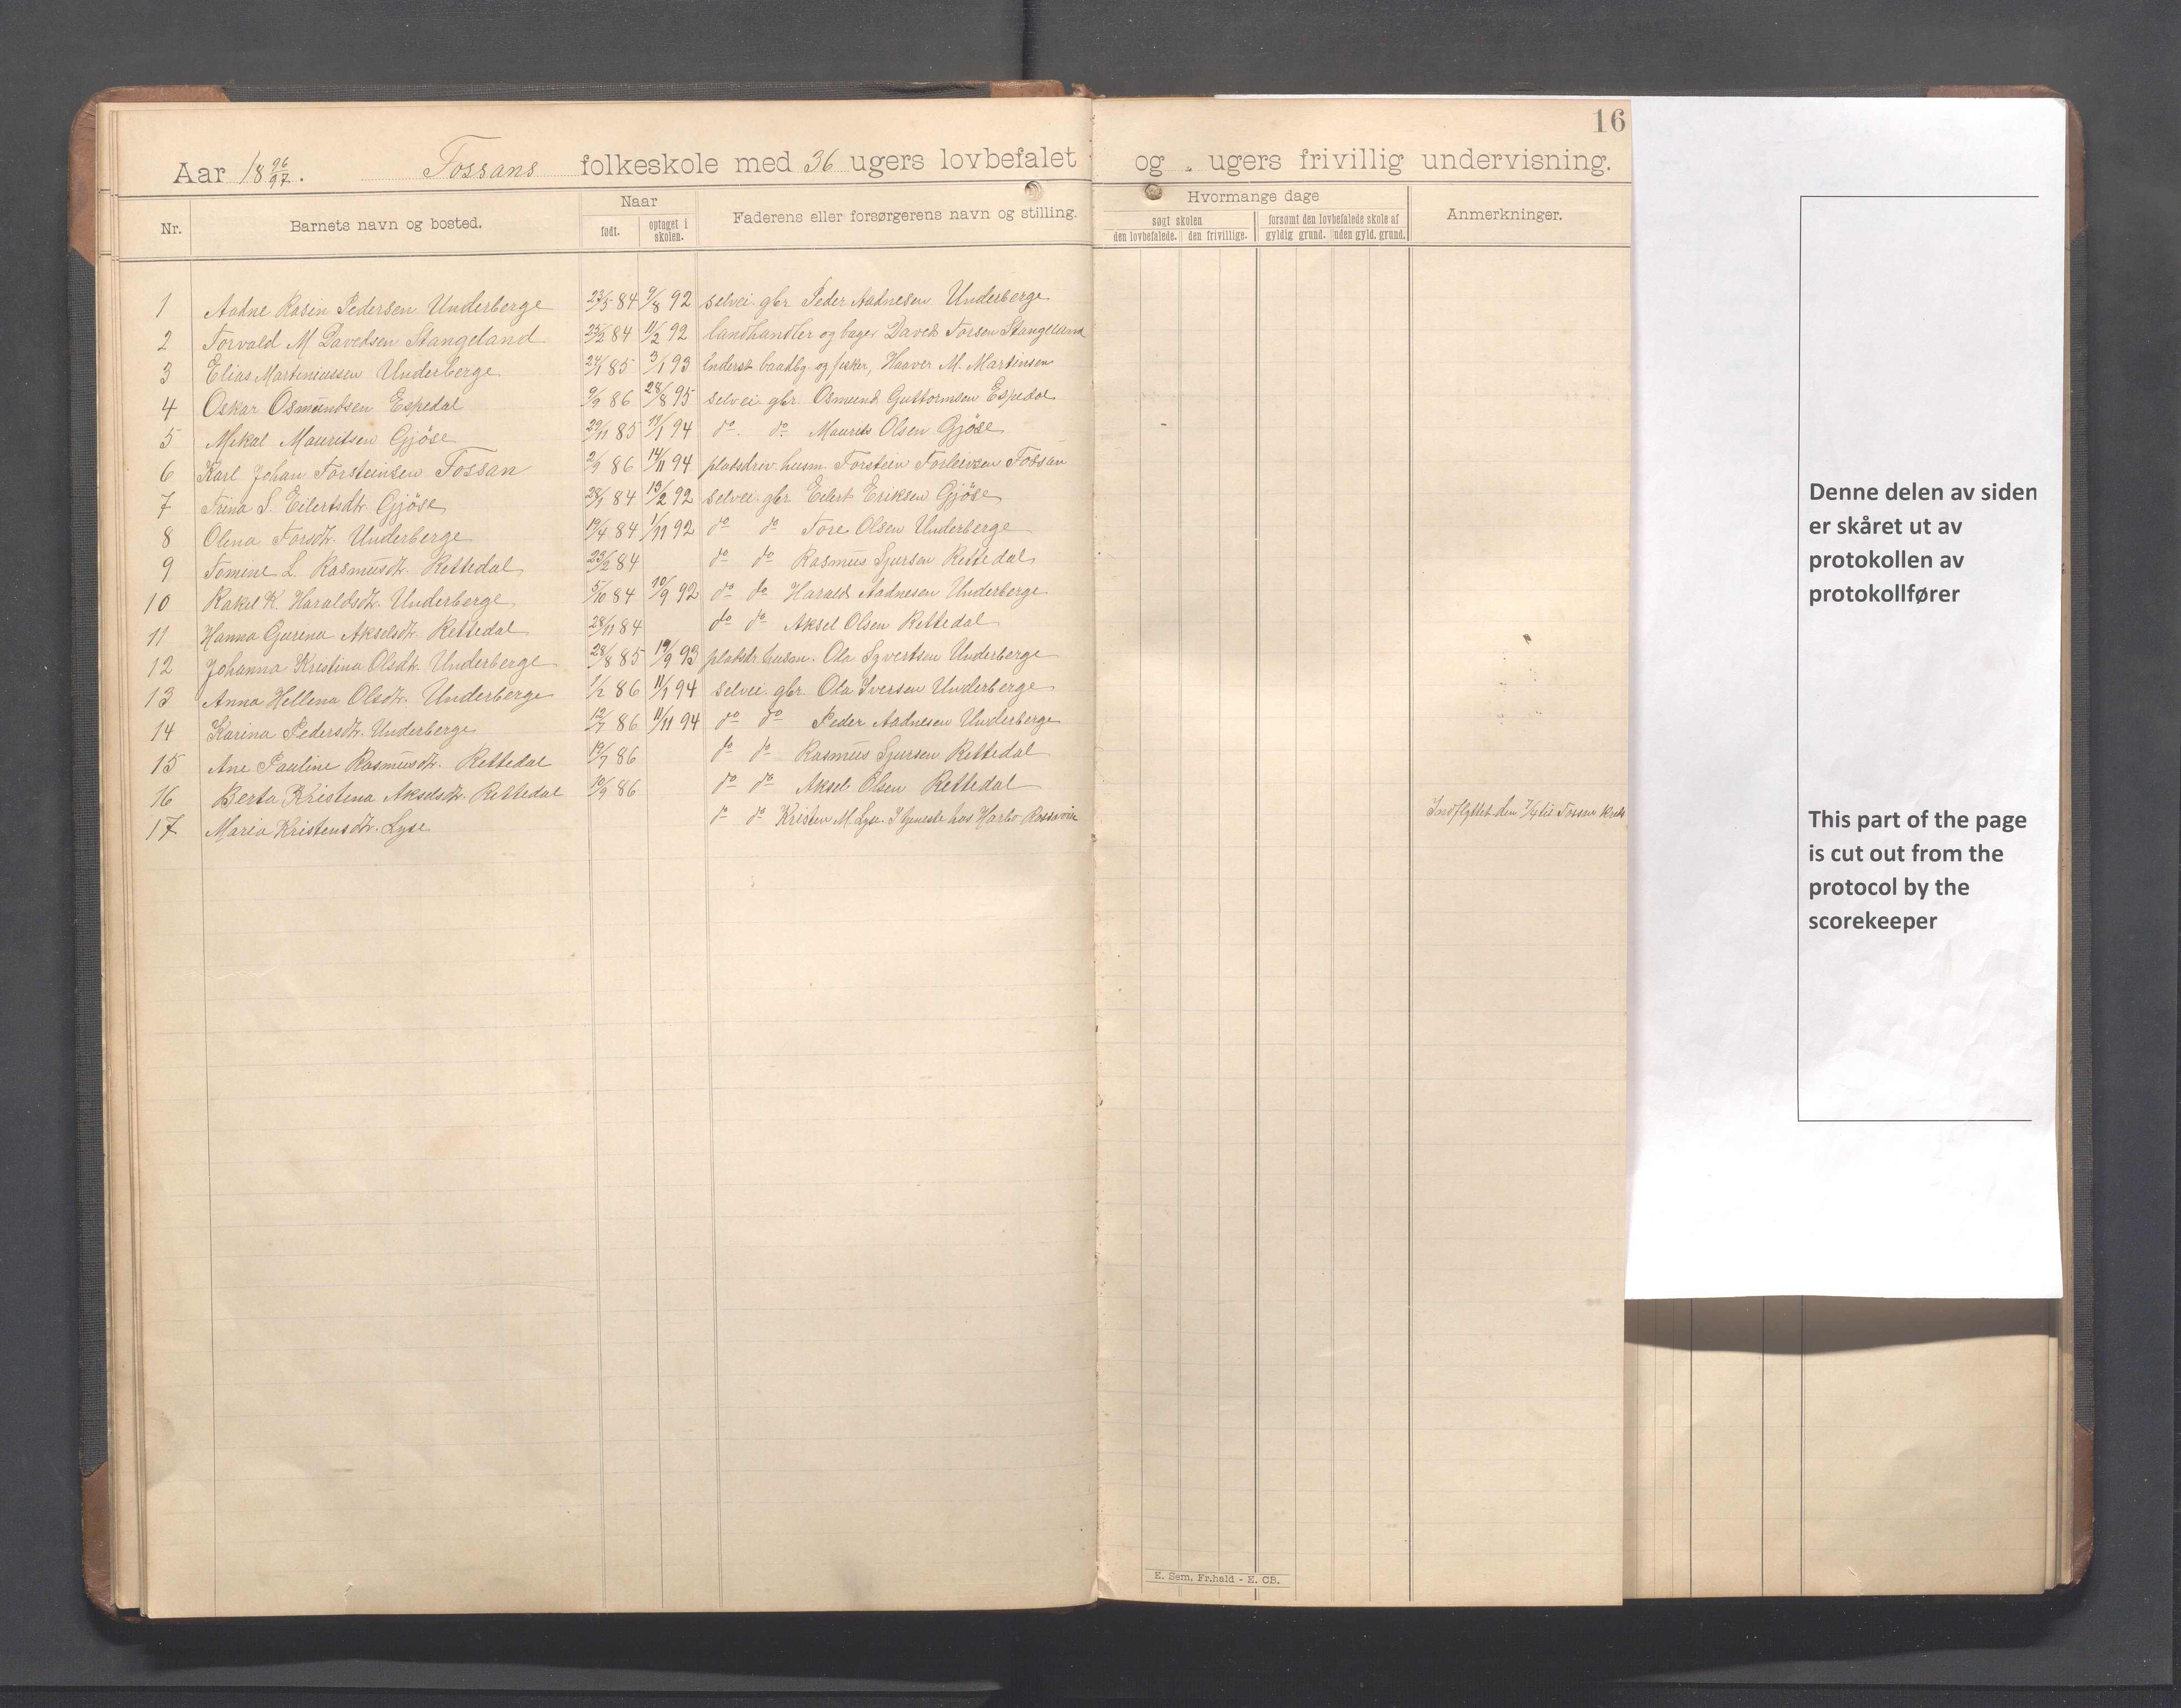 16
Aar 18 96/97. Fossans folkeskole med 36 ugers lovbefalet og . ugers frivillig undervisning.
Nr. Barnets navn og bosted. Naar født. optaget i skolen. Faderens eller forsørgerens navn og stilling. Hvormange dage søgt skolen den lovbefalede. den frivillige. forsømt den lovbefalede skole af gyldig grund. uden gyld. grund. Anmerkninger.
1 Aadne Rasin Pedersen Underberge 23/5 84 9/8 92 selvei. gbr. Peder Aadnesen Underberge
2 Torvald M Davedsen Stangeland 25/2 84 11/2 92 landhandler og bager Daved Torsen Stangeland
3 Elias Martiniussen Underberge 24/1 85 3/1 93 Inderst baadbg. og fisker, Haaver M. Martinsen
4 Oskar Osmundsen Espedal 9/9 86 28/8 95 selvei. gbr. Osmund Guttormsen Espedal
5 Mikal Mauritsen Gjöse 29/11 85 11/1 94 do. do. Maurits Olsen Gjöse
6 Karl Johan Torsteinsen Fossan 2/9 86 14/11 94 pladsdriv. husm. Torstein Torleivsen Fossan
7 Trina S. Eilertsdtr. Gjöse 28/1 84 13/2 92 selvei. gbr. Eilert Eriksen Gjöse
8 Olena Torsdtr. Underberge 19/4 84 1/11 92 do do Tore Olsen Underberge
9 Tomine L. Rasmusdtr. Rettedal 23/2 84 do do Rasmus Sjursen Rettedal
10 Rakel K. Haraldsdtr. Underberge 5/10 84 10/9 92 do do Harald Aadnesen Underberge
11 Hanna Gurina Akselsdtr. Rettedal 28/11 84 do do Aksel Olsen Rettedal
12 Johanna Kristina Olsdtr. Underberge 28/8 85 19/9 93 pladsdr. husm. Ola Syvertsen Underberge
13 Anna Hellena Olsdtr. Underberge 1/2 86 11/1 94 selvei. gbr. Ola Iversen Underberge
14 Karina Pedersdtr. Underberge 12/7 86 11/11 94 do do Peder Aadnesen Underberge
15 Ane Pauline Rasmusdtr. Rettedal 19/7 86 do do Rasmus Sjursen Rettedal
16 Berta Kristina Akselsdtr. Rettedal 10/9 86 do do Aksel Olsen Rettedal
17 Maria Kristensdtr. Lyse do do Kristen M. Lyse. I tjeneste hos Indflyttet den til Fossan
E. Sem, Fr.hald - E. CB.
Denne delen av siden
er skåret ut av
protokollen av
protokollfører
This part of the page
is cut out from the
protocol by the
scorekeeper